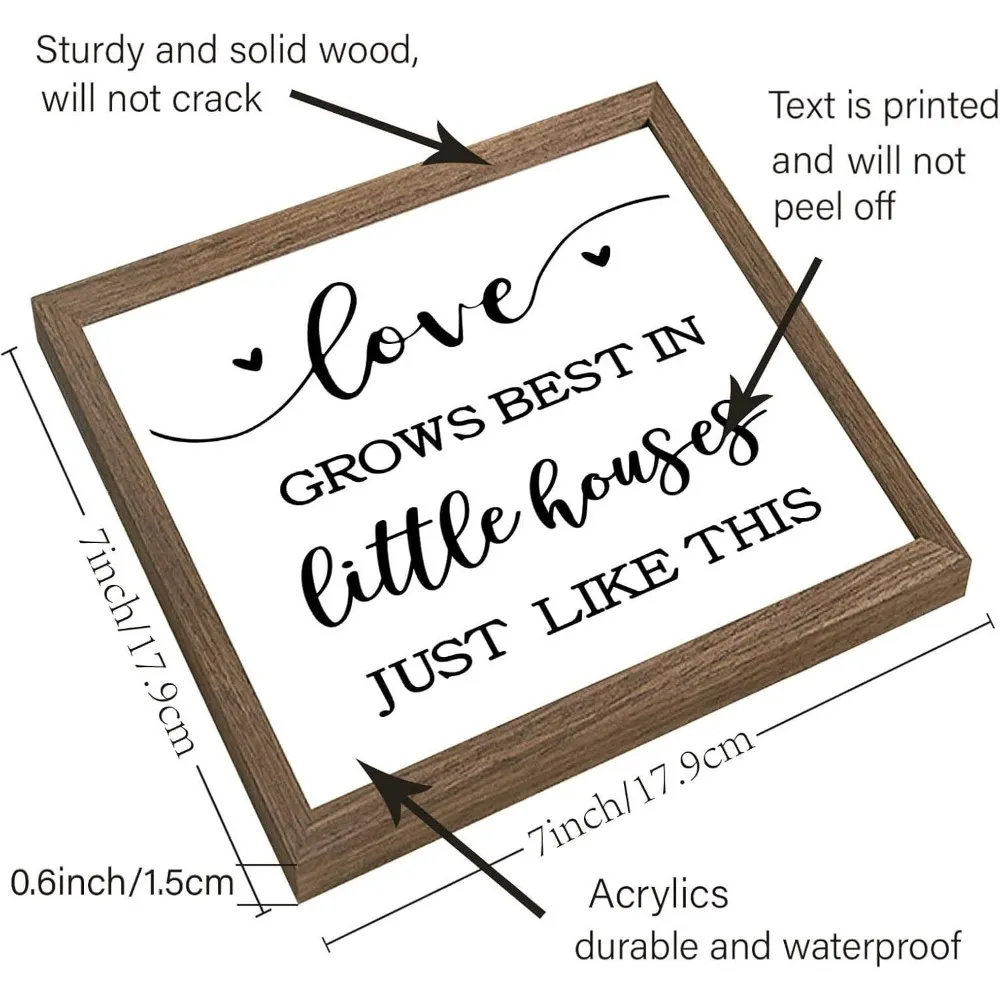 Sturdy and solid wood,
will not crack
Text is printed
and will not
peel off
love
GROWS BEST IN
little houses
JUST LIKE THIS
7inch/17.9cm
7inch/17.9cm
0.6inch/1.5cm
Acrylics
durable and waterproof